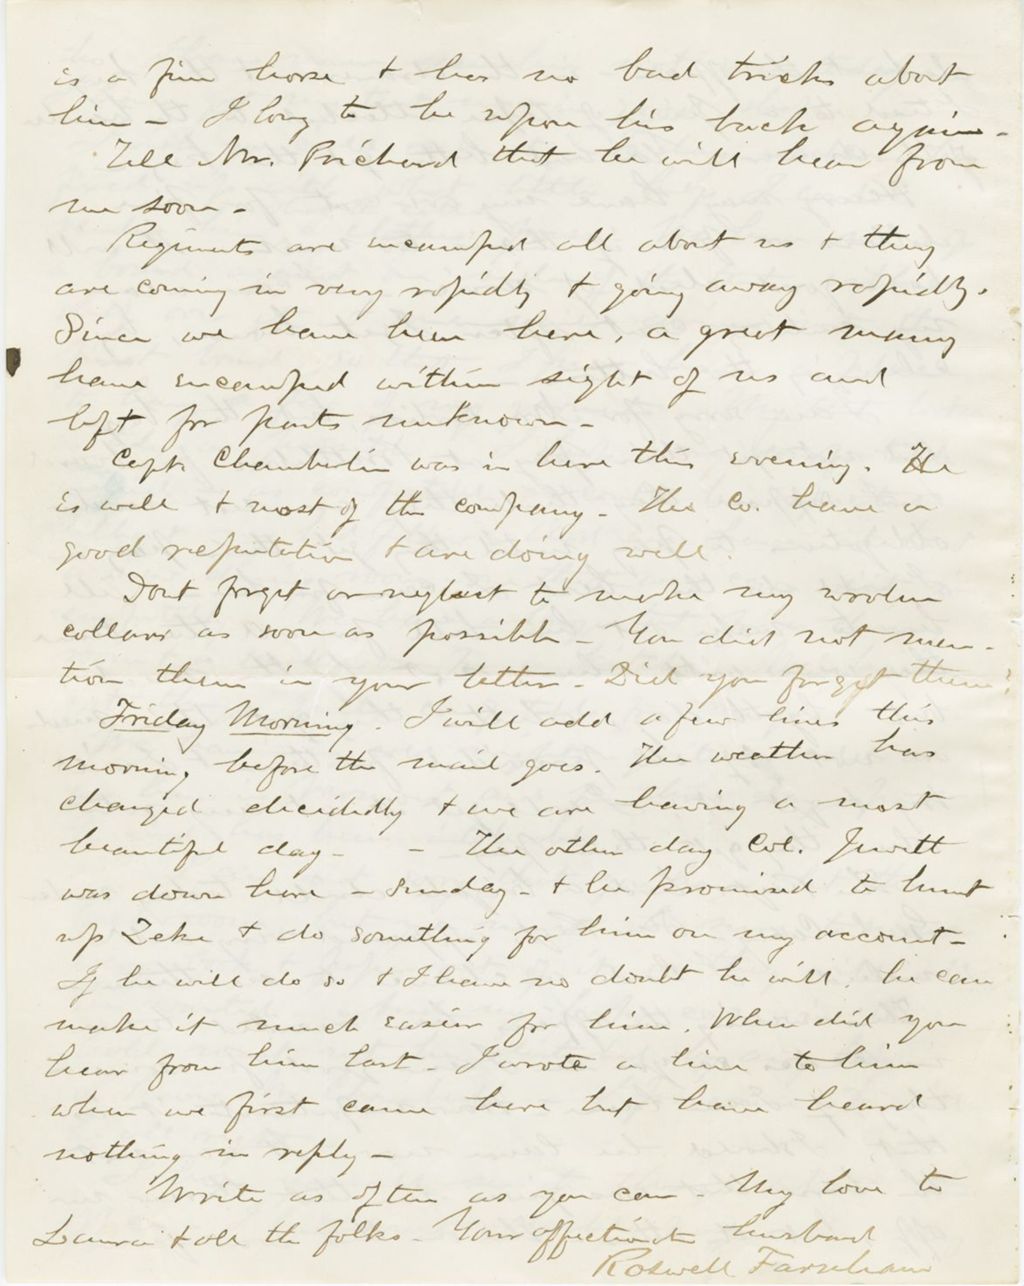 is a fine horse & has no bad tricks about
him – I long to be upon his back again –
Tell Mr. Prichard that he will hear from
me soon –
Regiments are encamped all about us & they
are coming in very rapidly & going away rapidly.
Since we have been here, a great many
have encamped within sight of us and
left for parts unknown –
Capt. Chamberlin was in here this evening. He
is well & most of the company – The Co. have a
good reputation & are doing well.
Dont forget or neglect to make my woolen
collars as soon as possible – You did not men-
tion them in your letter – Did you forget them?
Friday Morning. I will add a few lines this
morning before the mail goes. The weather has
changed decidedly & we are having a most
beautiful day – – The other day Col. Jewett
was down here – Sunday – & he promised to hunt
up Zeke & do something for him on my account –
If he will do so & I have no doubt he will, he can
make it much easier for him. When did you
hear from him last – I wrote a line to him
when we first came here but have heard
nothing in reply –
Write as often as you can – My love to
Laura & all the folks – Your affectionate husband
Roswell Farnham